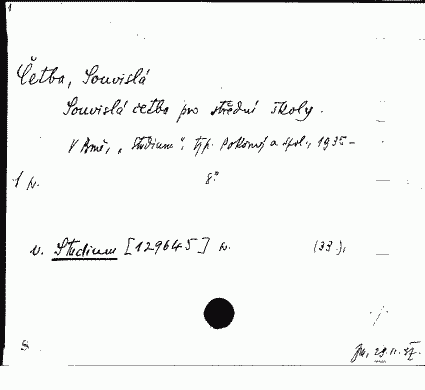 Četba, Souvislá
Souvislá četba pro střední školy.
V Brně, "Studium", typ. Pokorný a spol., 1935-
1 v. 8°
v. Studium [129645] v. (33.),